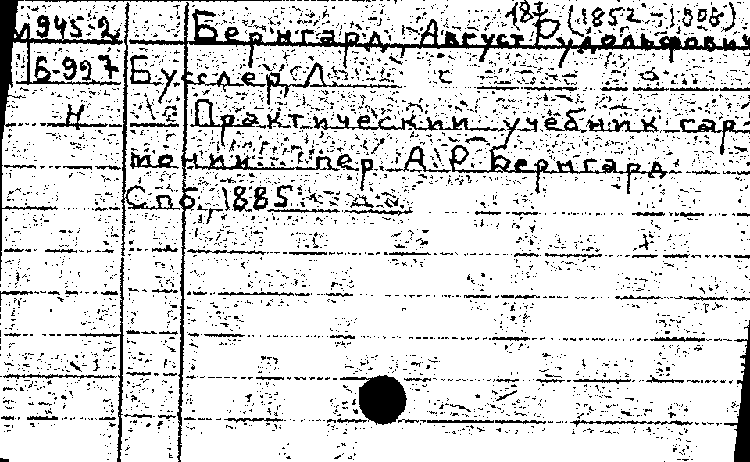 м945-2 Бернгард, Август Рудольфович (1852-1908)
Б-997 Бусслер, Л
Н Практический учебник гар-
монии... пер. А. Р. Бернгард.
Спб., 1885